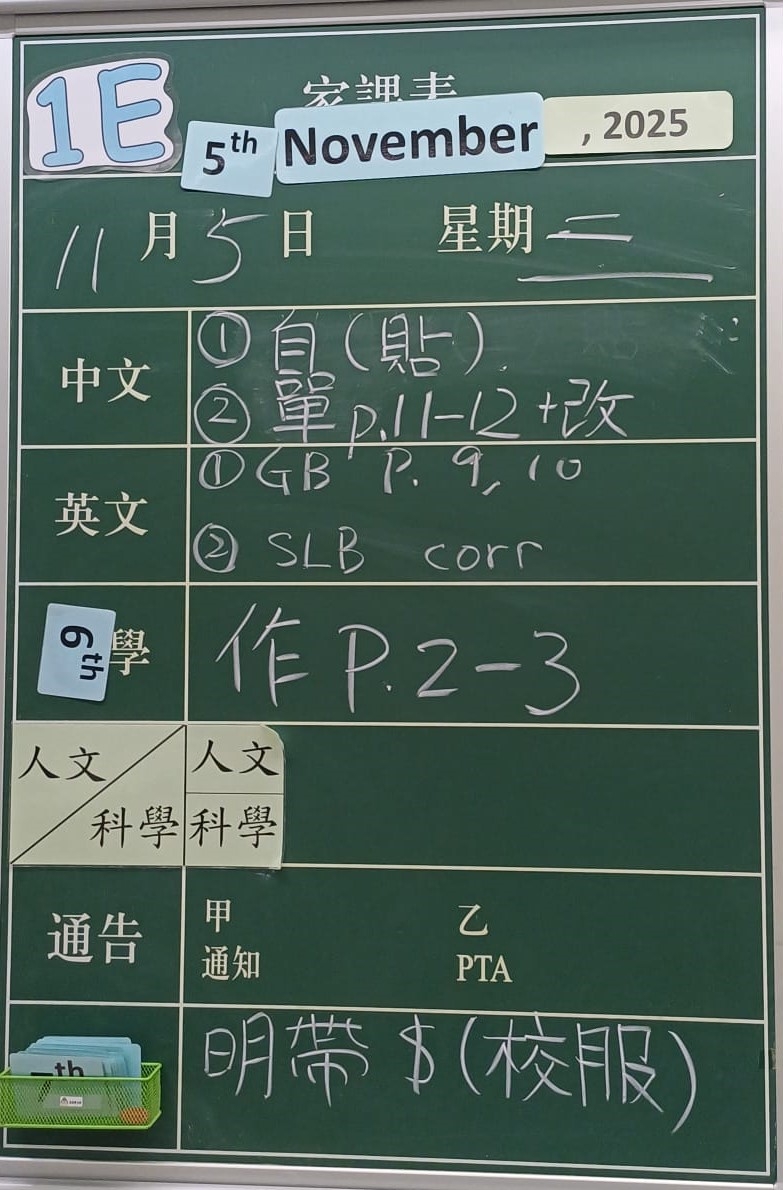 1E
家課表
5th November , 2025
11月5日 星期二
中文
① 自(貼)
② 單 p.11-12 +改
英文
① GB P. 9, 10
② SLB corr
6th
學
作 P.2-3
人文
科學
人文
科學
通告
甲 乙
通知 PTA
7th
明帶 $(校服)